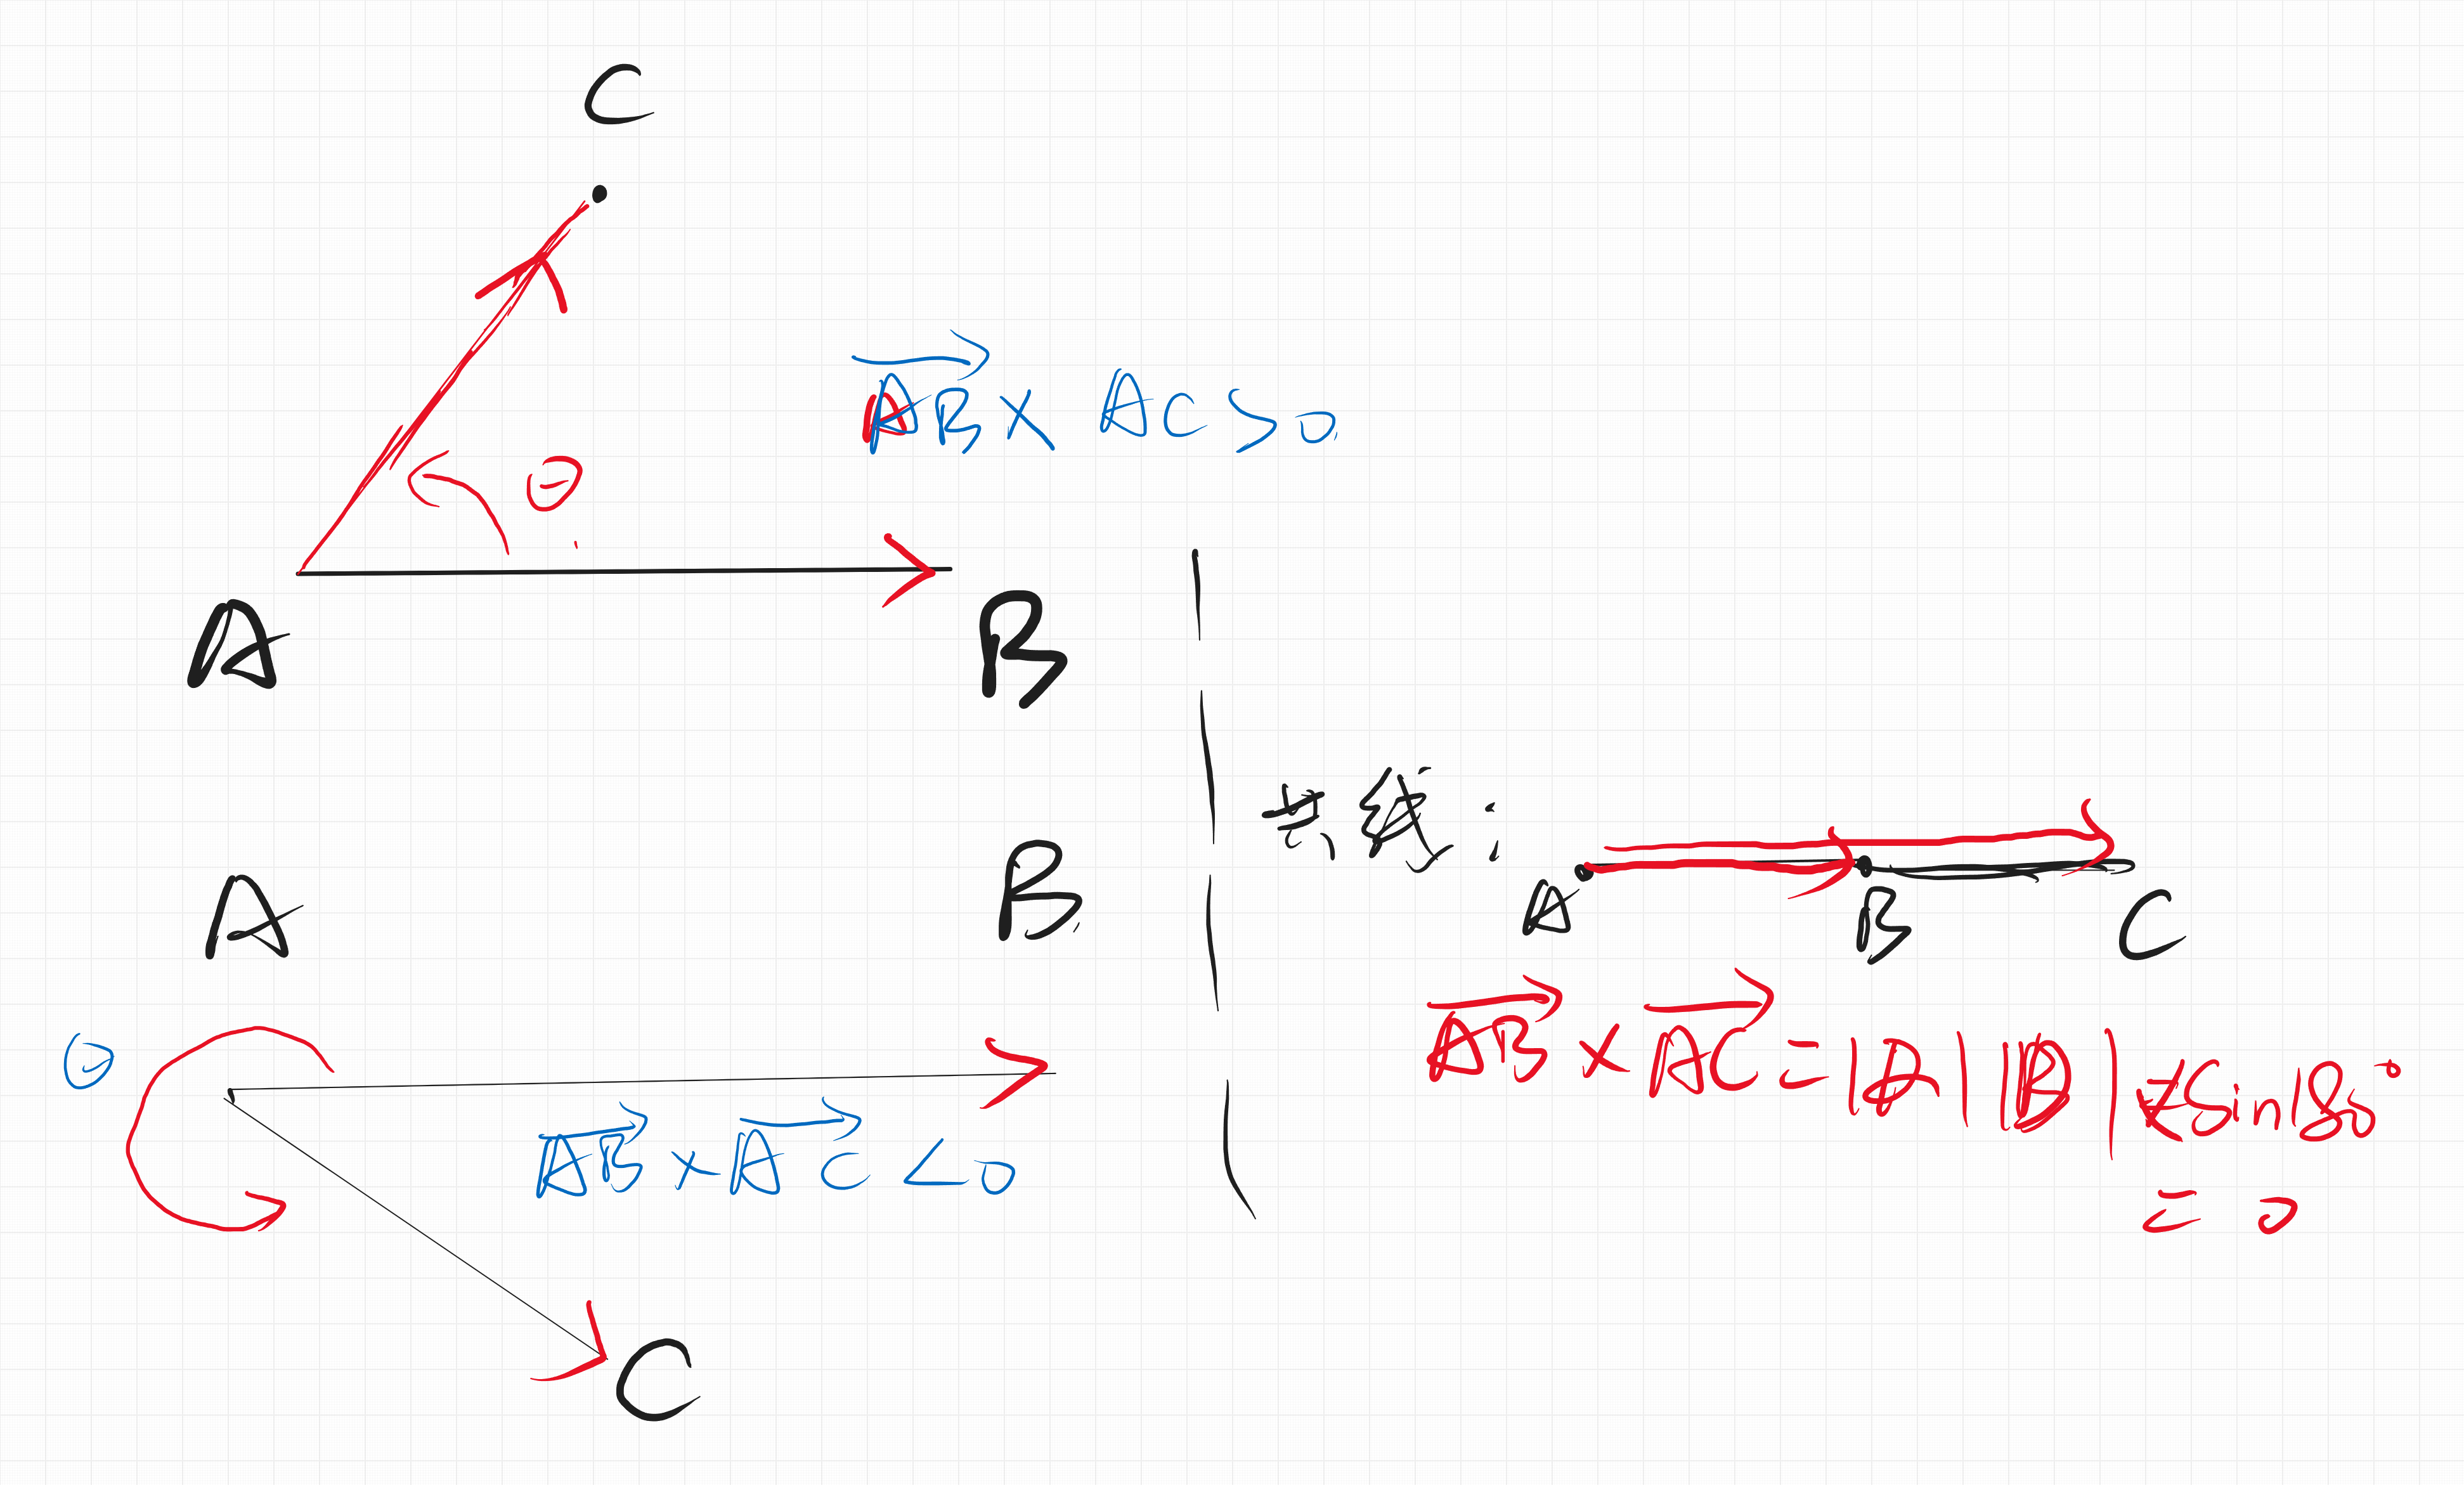 C
θ
AB × AC > 0
A B
A B
θ
AB × AC < 0
C
共线:
A B C
AB × AC = |A| |B| × sin180°
= 0